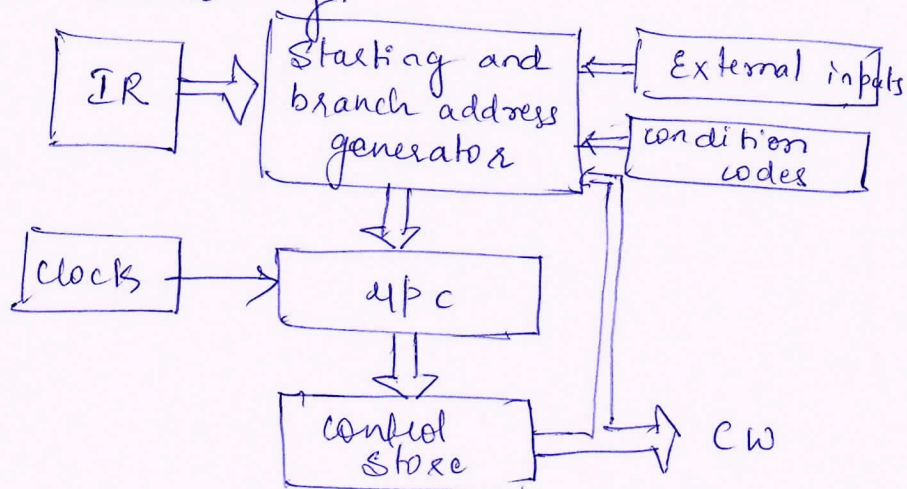 IR
Starting and
branch address
generator
External inputs
condition
codes
clock
μpc
control
store
CW